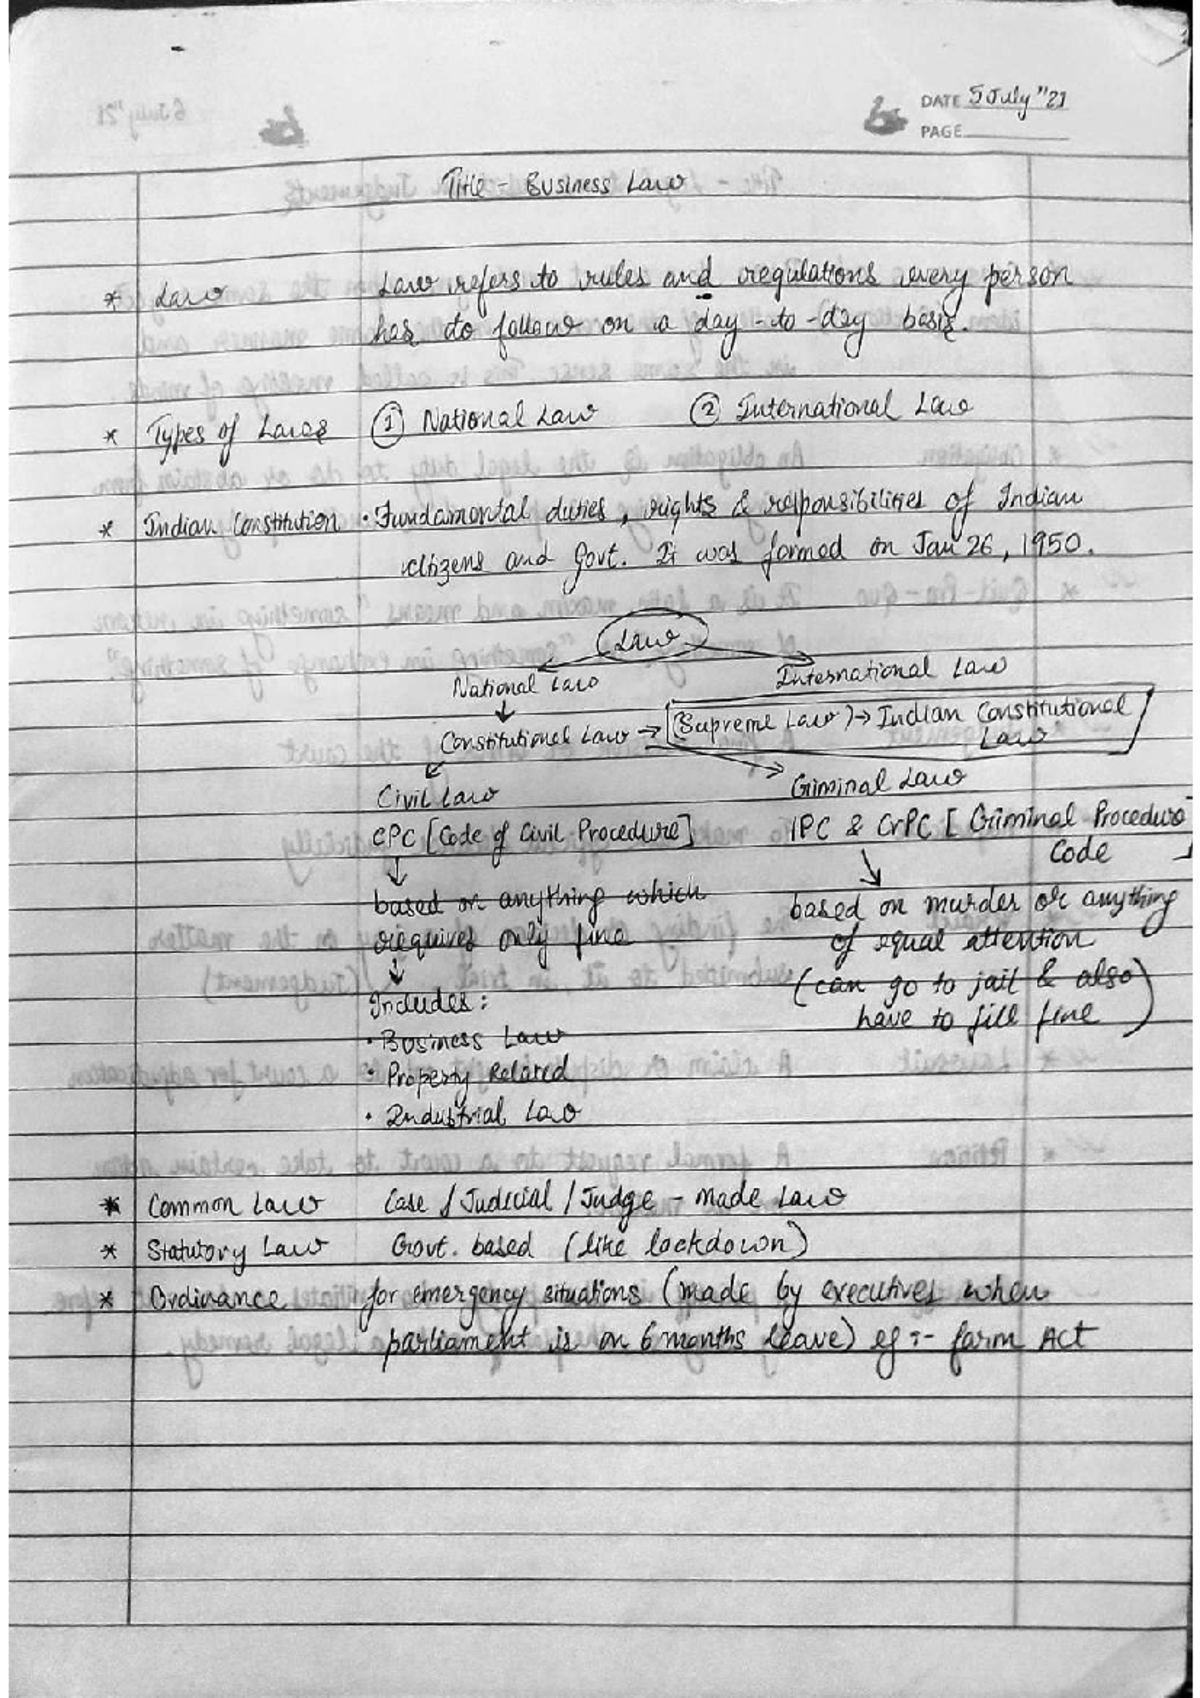 DATE 5 July "21
PAGE
Title - Business Law
* Law Law refers to rules and regulations every person
has to follow on a day-to-day basis.
* Types of Laws ① National Law ② International Law
* Indian Constitution • Fundamental duties, rights & responsibilities of Indian
citizens and Govt. It was formed on Jan 26, 1950.
Law
National Law International Law
Constitutional Law → [(Supreme Law) → Indian Constitutional
Law]
Civil Law Criminal Law
CPC [Code of Civil Procedure] IPC & CrPC [Criminal Procedure
Code]
based on anything which based on murder or anything
requires only fine of equal attention
Includes: (can go to jail & also
have to fill fine)
• Business Law
• Property Related
• Industrial Law
* Common Law Case / Judicial / Judge - made Law
* Statutory Law Govt. based (like lockdown)
* Ordinance for emergency situations (made by executives when
parliament is on 6 months leave) eg :- farm Act